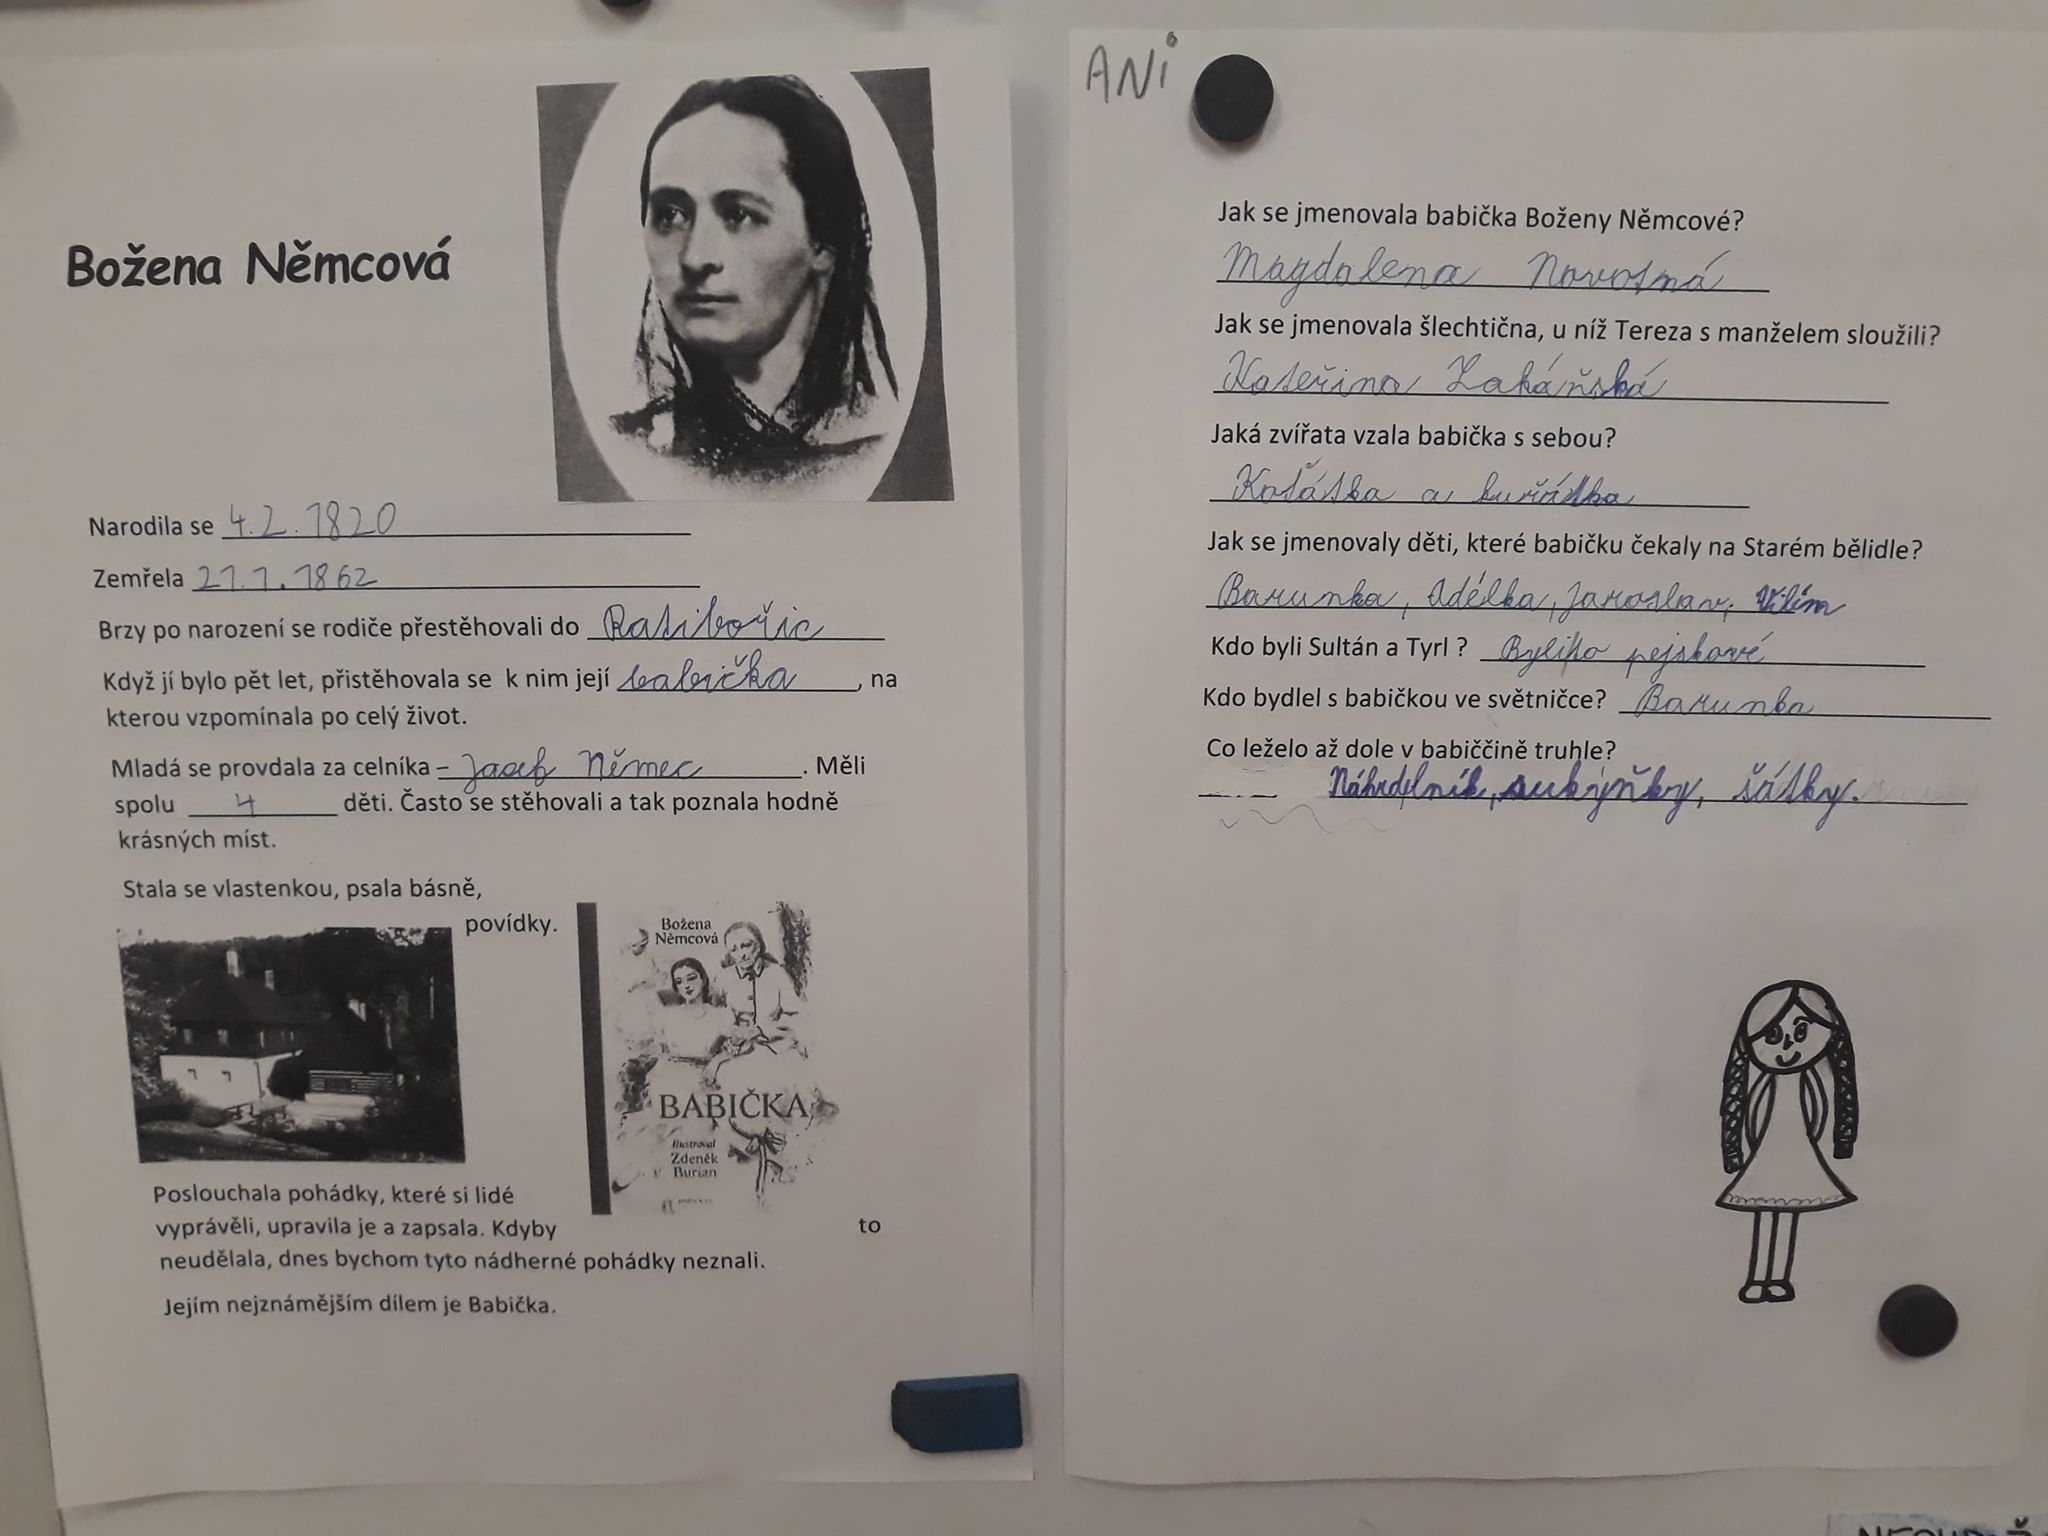 Božena Němcová
Narodila se 4.2.1820
Zemřela 21.1.1862
Brzy po narození se rodiče přestěhovali do Ratibořic
Když jí bylo pět let, přistěhovala se k nim její babička, na
kterou vzpomínala po celý život.
Mladá se provdala za celníka – Josef Němec. Měli
spolu 4 děti. Často se stěhovali a tak poznala hodně
krásných míst.
Stala se vlastenkou, psala básně,
povídky.
Božena
Němcová
BABIČKA
Ilustroval
Zdeněk
Burian
Poslouchala pohádky, které si lidé
vyprávěli, upravila je a zapsala. Kdyby to
neudělala, dnes bychom tyto nádherné pohádky neznali.
Jejím nejznámějším dílem je Babička.
ANi
Jak se jmenovala babička Boženy Němcové?
Magdalena Novotná
Jak se jmenovala šlechtična, u níž Tereza s manželem sloužili?
Kateřina Zaháňská
Jaká zvířata vzala babička s sebou?
Koťátka a kuřátka
Jak se jmenovaly děti, které babičku čekaly na Starém bělidle?
Barunka, Adélka, Jaroslav, Vilím
Kdo byli Sultán a Tyrl ? Byli to pejskové
Kdo bydlel s babičkou ve světničce? Barunka
Co leželo až dole v babiččině truhle?
Náhrdelník, sukýňky, šátky.